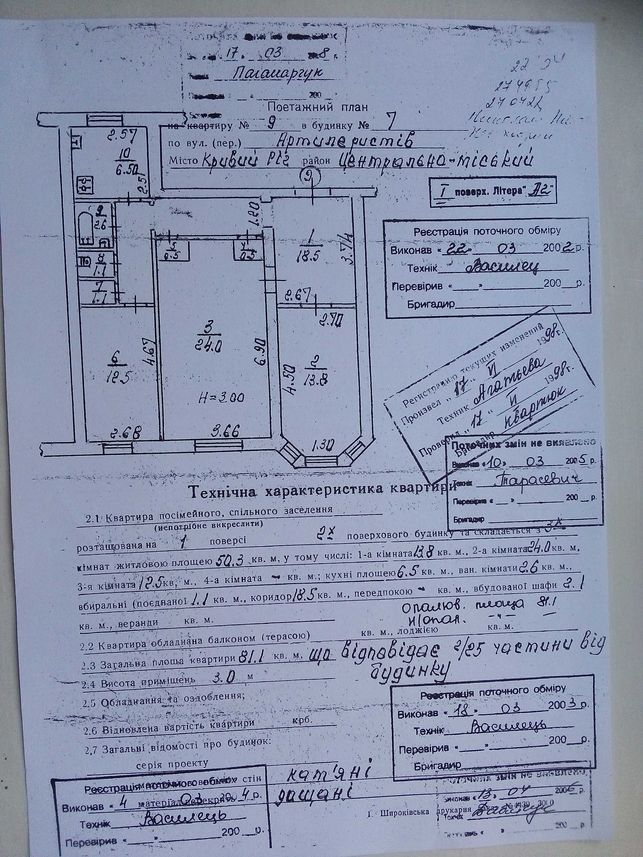 17 03 8 г.
Паламарчук
200
22
274955
Поетажний план
на квартиру № 9 в будинку № 7
по вул. (пер.) Артилеристів
Місто Кривий Ріг район Центрально-міський
I поверх. Літера "А2"
Реєстрація поточного обміру
Виконав «22» 03 2002 р.
Технік Василец
Перевірив «__» 200_р.
Бригадир
9
2.57
10
6.50
2.5
9
2.6
8
1.1
7
1.1
1.20
1
18.5
3.74
2.67
5
0.5
4
0.5
3
24.0
6.90
H=3.00
3.66
6
12.5
4.67
2.68
2.70
2
13.8
4.50
1.30
Регистрацию текущих изменений
Произвел "17" VI 1998г.
Техник Агатьева
"17" VI 1998г.
Бригадир Квартюк
Поточних змін не виявлено
Виконав «10» 03 2005 р.
Технік Тарасевич
Перевірив « » 200 р.
Бригадир
Технічна характеристика квартири
2.1 Квартира посімейного, спільного заселення
(непотрібне викреслити)
розташована на 1 поверсі 2х поверхового будинку та складається з 3х
кімнат житловою площею 50,3 кв. м, у тому числі: 1-а кімната 13.8 кв. м., 2-а кімната 24.0 кв. м,
3-я кімната 12.5 кв, м., 4-а кімната - кв. м.; кухні площею 6.5 кв. м., ван. кімнати 2.6 кв. м.,
вбиральні (поєднаної 1.1 кв. м., коридор 18.5 кв. м., передпокою - кв. м., вбудованої шафи 2.1
кв. м., веранди кв. м.
Опалюв. площа 81.1
2.2 Квартира обладнана балконом (терасою) кв. м., лоджією кв. м.
2.3 Загальна площа квартири 81.1 кв. м, що відповідає 2/25 частини від
будинку
2.4 Висота приміщень 3.0 м
2.5 Обладнання та оздоблення;
2.6 Відновлена вартість квартири крб.
2,7 Загальні відомості про будинок:
серія проекту
Реєстрація поточного обміру
Виконав «18» 03 2003 р.
Технік Василець
Перевірив « » 200 р.
Бригадир
стін кам'яні
матеріал перекрить дощані
Реєстрація поточного обміру
Виконав «4 03 2004 р.
Технік Василець
Перевірив « » 200 р.
Поточних змін не виявлено
13 04
І. Широківська друкарня